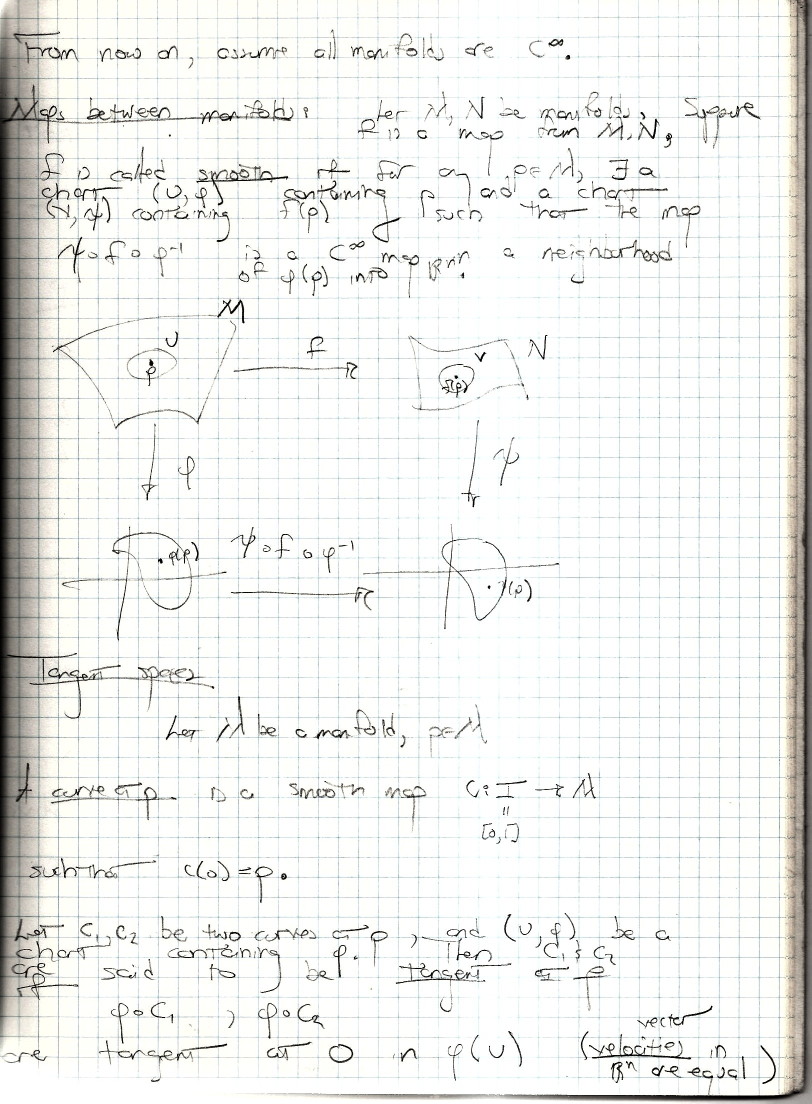 From now on, assume all manifolds are C^∞.
Maps between manifolds: Let M, N be manifolds, Suppose
f is a map from M, N,
f is called smooth if for any p∈M, ∃ a
chart (U, φ) containing p and a chart
(V, ψ) containing f(p) such that the map
ψ∘f∘φ⁻¹ is a C^∞ map a neighborhood
of φ(p) into ℝⁿ.
M
U
p
f
V
f(p)
N
φ
ψ
φ(p)
ψ∘f∘φ⁻¹
Tangent spaces
Let M be a manifold, p∈M
A curve at p is a smooth map C: I → M
=
[0,1]
such that c(0) = p.
Let C₁, C₂ be two curves at p, and (U, φ) be a
chart containing p. Then C₁ & C₂
are said to be tangent at p
if
φ∘C₁, φ∘C₂
are tangent at 0 in φ(U) (velocities in
vector
ℝⁿ are equal)